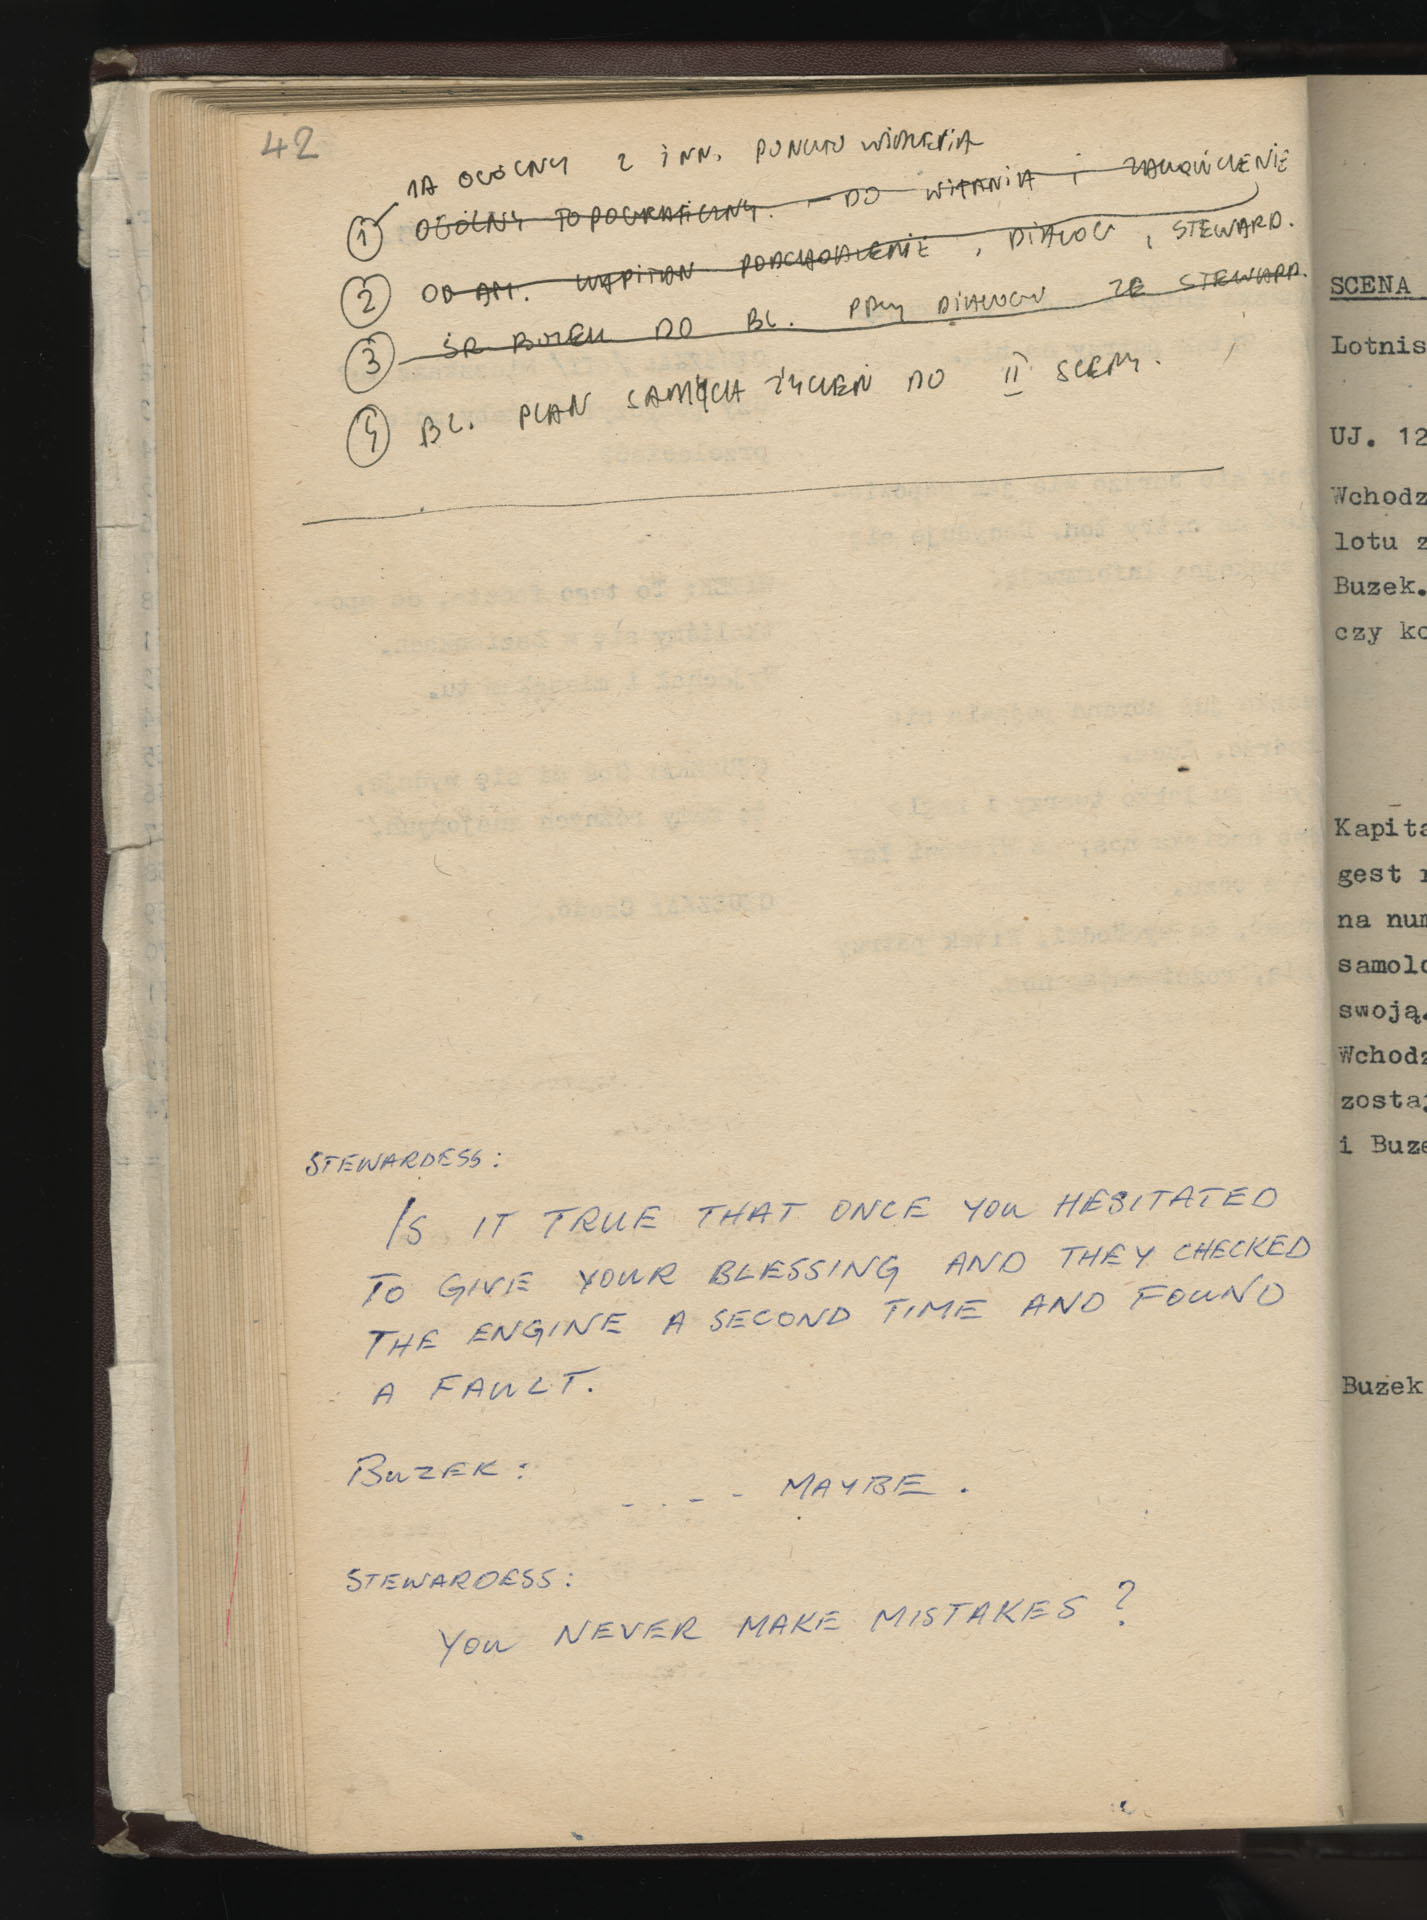 42
1A OGÓLNY Z INN. PUNKTU WIDZENIA
① OGÓLNY TOPOGRAFICZNY. – DO WITANIA i ZAKOŃCZENIE
② OD AM. KAPITAN PODCHODZENIE, DIALOG, STEWARD.
③ ŚR BUZEK DO BL. PRZY DIALOGU ZE STEWARD.
④ BL. PLAN SAMYCH ŻYCZEŃ DO II SCENY.
STEWARDESS:
IS IT TRUE THAT ONCE YOU HESITATED
TO GIVE YOUR BLESSING AND THEY CHECKED
THE ENGINE A SECOND TIME AND FOUND
A FAULT.
BUZEK:
- . - - MAYBE.
STEWARDESS:
YOU NEVER MAKE MISTAKES?
SCENA
Lotnis
UJ. 12
Wchodz
lotu z
Buzek.
czy ko
Kapita
gest r
na num
samolo
swoją.
Wchodz
zostaj
i Buze
Buzek